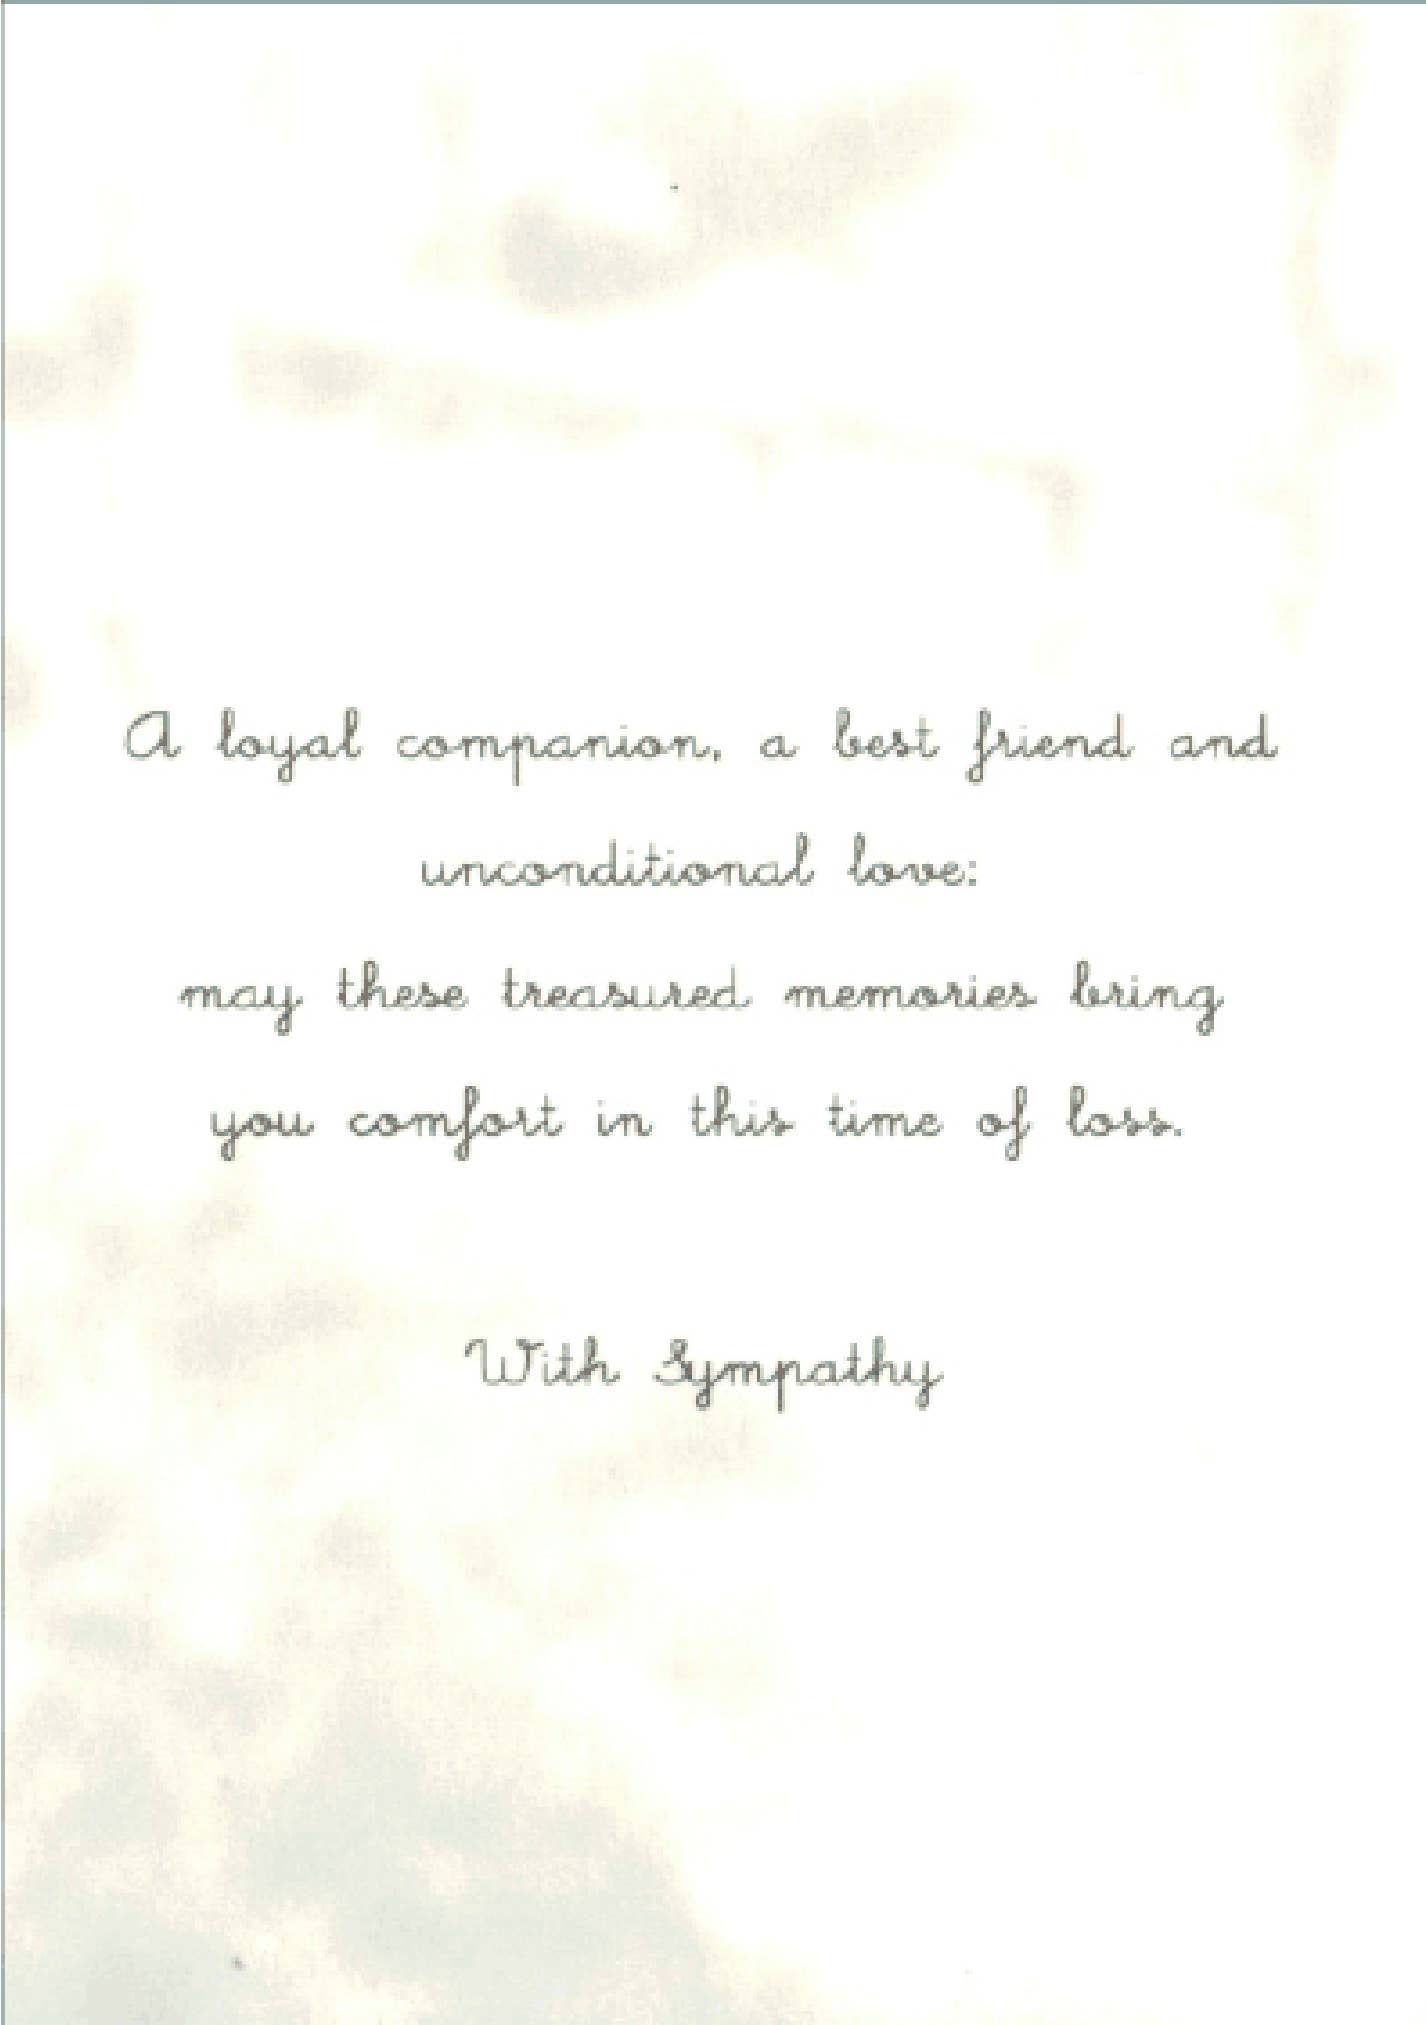 A loyal companion, a best friend and
unconditional love:
may these treasured memories bring
you comfort in this time of loss.
With Sympathy